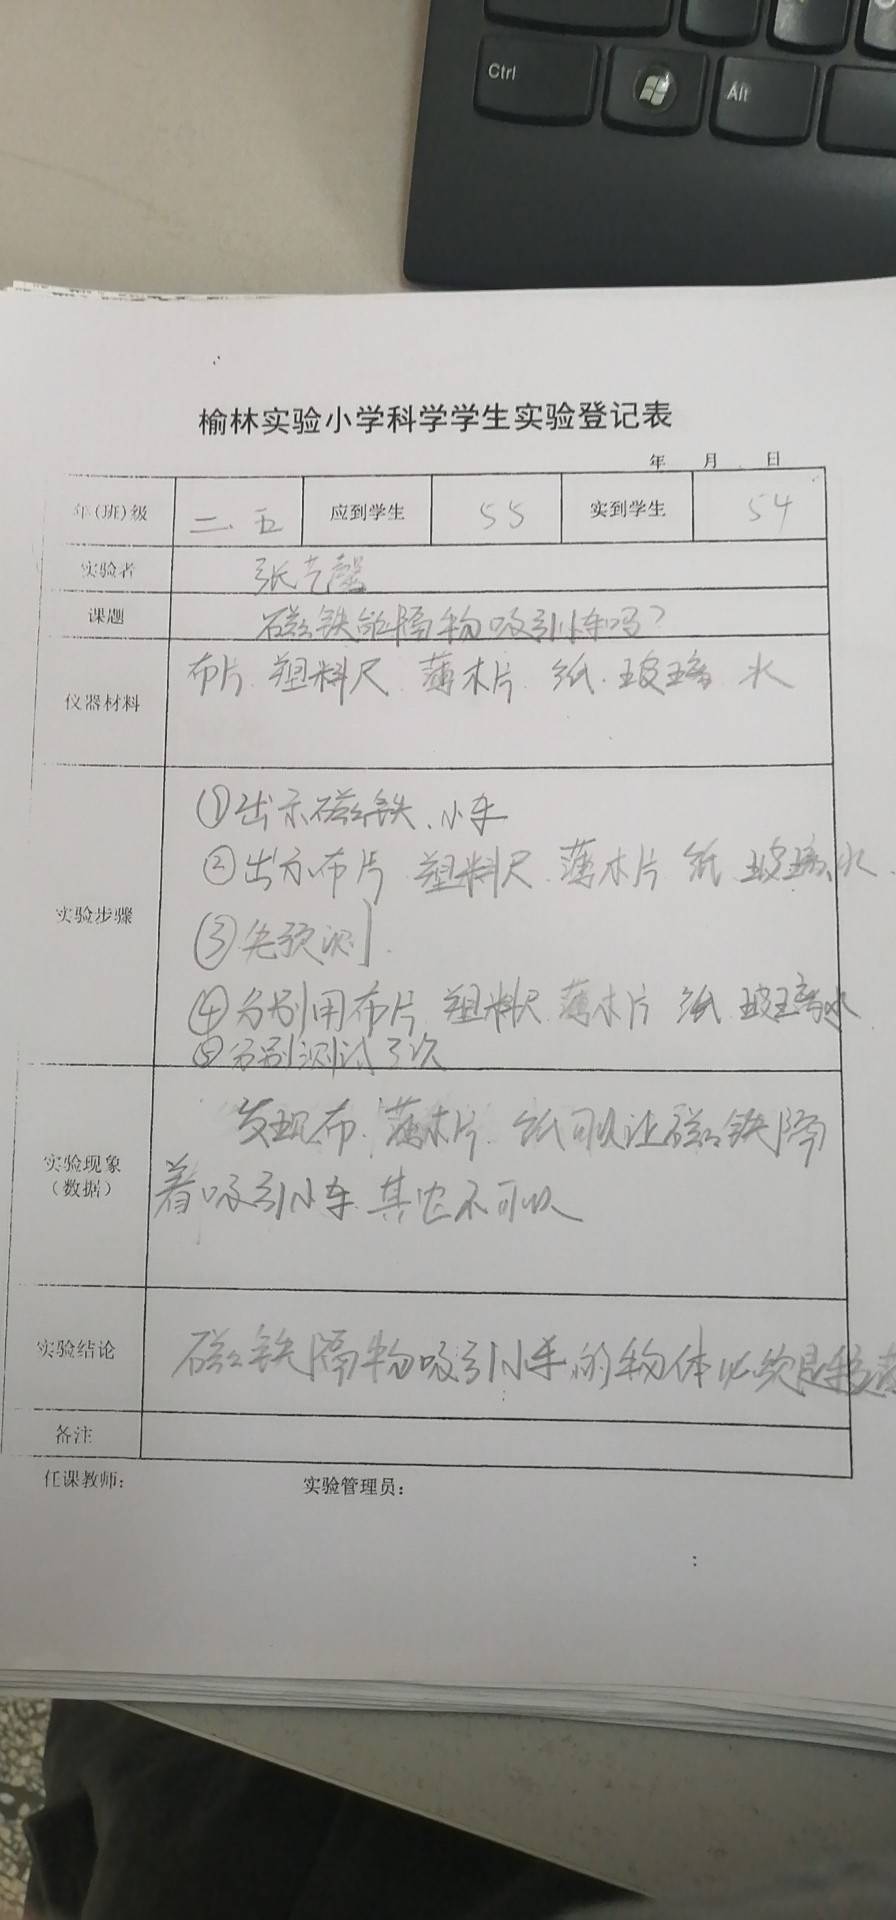 Ctrl
Alt
榆林实验小学科学学生实验登记表
年 月 日
年(班)级 二.五 应到学生 55 实到学生 54
实验者 张艺馨
课题 磁铁能隔物吸引小车吗?
仪器材料 布片 塑料尺 薄木片 纸 玻璃 水
①出示磁铁、小车
②出示布片 塑料尺 薄木片 纸 玻璃、水
实验步骤
③先预测
④分别用布片 塑料尺 薄木片 纸 玻璃水
⑤分别测试3次
发现布 薄木片 纸可以让磁铁隔
实验现象
(数据)
着吸引小车 其它不可以
实验结论 磁铁隔物吸引小车的物体必须是
备注
任课教师: 实验管理员: